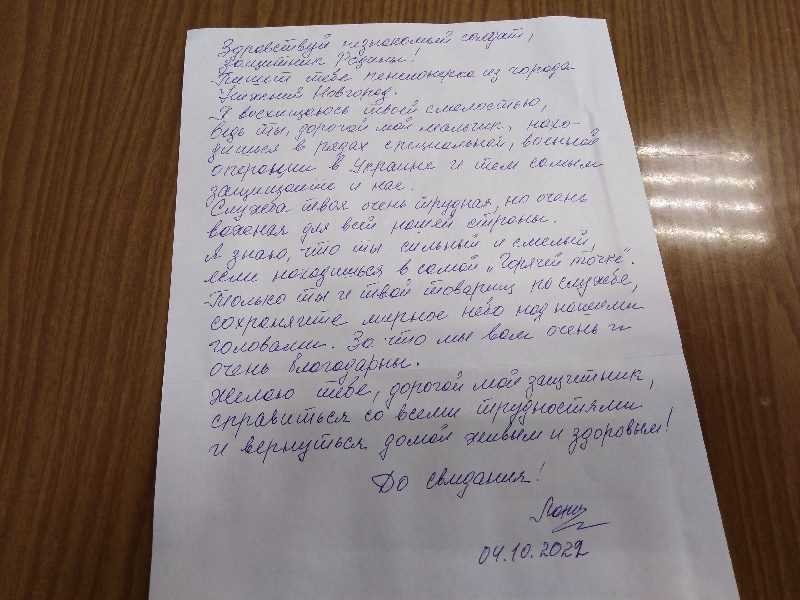 Здравствуй незнакомый солдат,
защитник Родины!
Пишет тебе пенсионерка из города
Нижний Новгород.
Я восхищаюсь твоей смелостью,
ведь ты, дорогой мой мальчик, нахо-
дишься в рядах специальной, военной
операции в Украине и тем самым
защищаете и нас.
Служба твоя очень трудная, но очень
важная для всей нашей страны.
Я знаю, что ты сильный и смелый,
если находишься в самой "Горячей точке".
Только ты и твой товарищ по службе,
сохраняите мирное небо над нашими
головами. За что мы вам очень и
очень благодарны.
Желаю тебе, дорогой мой защитник,
справиться со всеми трудностями
и вернуться домой живым и здоровым!
До свидания!
04.10.2022